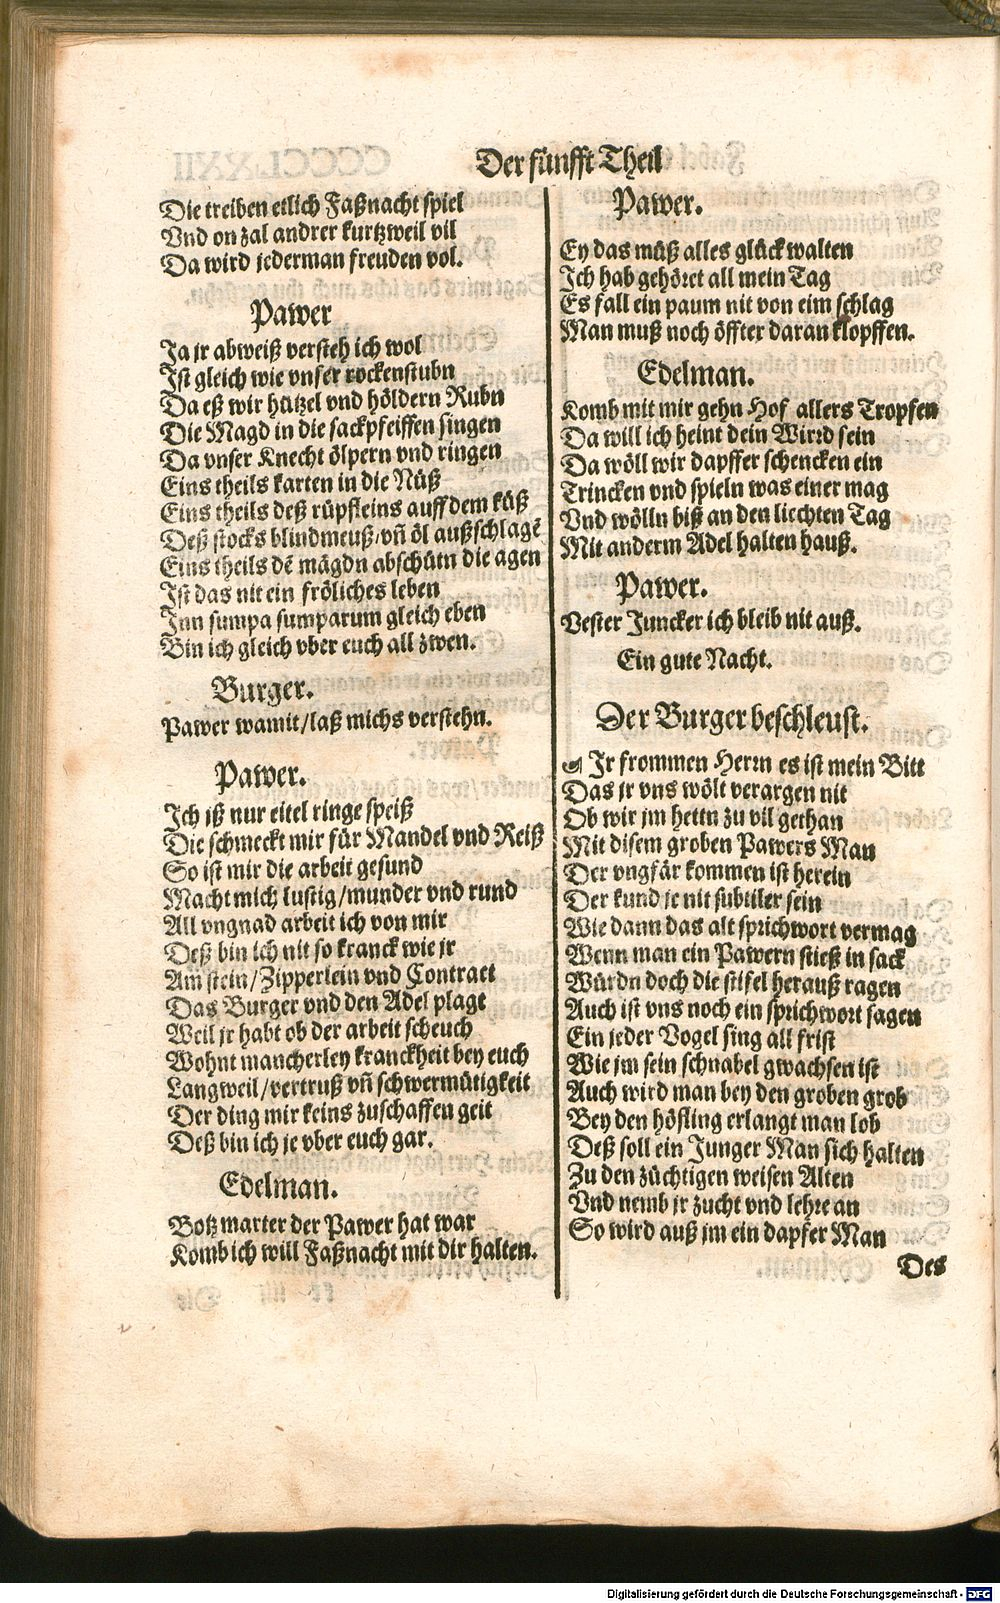 Der fünfft Theil
Die treiben etlich Faßnacht spiel
Vnd on zal andrer kurtzweil vil
Da wird jederman freuden vol.
Pawer
Ja jr abweiß versteh ich wol
Ist gleich wie vnser rockenstubn
Da eß wir hützel vnd höldern Rubn
Die Magd in die sackpfeiffen singen
Da vnser Knecht ölpern vnd ringen
Eins theils karten in die Nüß
Eins theils deß rüpffeins auff dem küß
Deß stocks blindmeuß/vñ öl außschlagẽ
Eins theils dẽ mägdn abschütn die agen
Ist das nit ein fröliches leben
Inn sumpa sumparum gleich eben
Bin ich gleich vber euch all zwen.
Burger.
Pawer wamit/laß michs verstehn.
Pawer.
Ich iß nur eitel ringe speiß
Die schmeckt mir für Mandel vnd Reiß
So ist mir die arbeit gesund
Macht mich lustig/munder vnd rund
All vngnad arbeit ich von mir
Deß bin ich nit so kranck wie jr
Am̃ stein/Zipperlein vnd Contract
Das Burger vnd den Adel plagt
Weil jr habt ob der arbeit scheuch
Wohnt mancherley kranckheit bey euch
Langweil/vertruß vñ schwermütigkeit
Der ding mir keins zuschaffen geit
Deß bin ich je vber euch gar.
Edelman.
Botz marter der Pawer hat war
Komb ich will Faßnacht mit dir halten.
Pawer.
Ey das müß alles glück walten
Ich hab gehöret all mein Tag
Es fall ein paum nit von eim schlag
Man muß noch öffter daran klopffen.
Edelman.
Komb mit mir gehn Hof allers Tropfen
Da will ich heint dein Wirrd sein
Da wöll wir dapffer schencken ein
Trincken vnd spieln was einer mag
Vnd wölln biß an den liechten Tag
Mit anderm Adel halten hauß.
Pawer.
Vester Juncker ich bleib nit auß.
Ein gute Nacht.
Der Burger beschleust.
Jr frommen Herrn es ist mein Bitt
Das jr vns wölt verargen nit
Ob wir jm hettn zu vil gethan
Mit disem groben Pawers Man
Der vngfär kommen ist herein
Der kund je nit subtiler sein
Wie dann das alt sprichwort vermag
Wenn man ein Pawern stieß in sack
Würdn doch die stifel herauß ragen
Auch ist vns noch ein sprichwort sagen
Ein jeder Vogel sing all frist
Wie jm sein schnabel gwachsen ist
Auch wird man bey den groben grob
Bey den höfling erlangt man lob
Deß soll ein Junger Man sich halten
Zu den züchtigen weisen Alten
Vnd nemb jr zucht vnd lehre an
So wird auß jm ein dapfer Man
Des
Digitalisierung gefördert durch die Deutsche Forschungsgemeinschaft - DFG